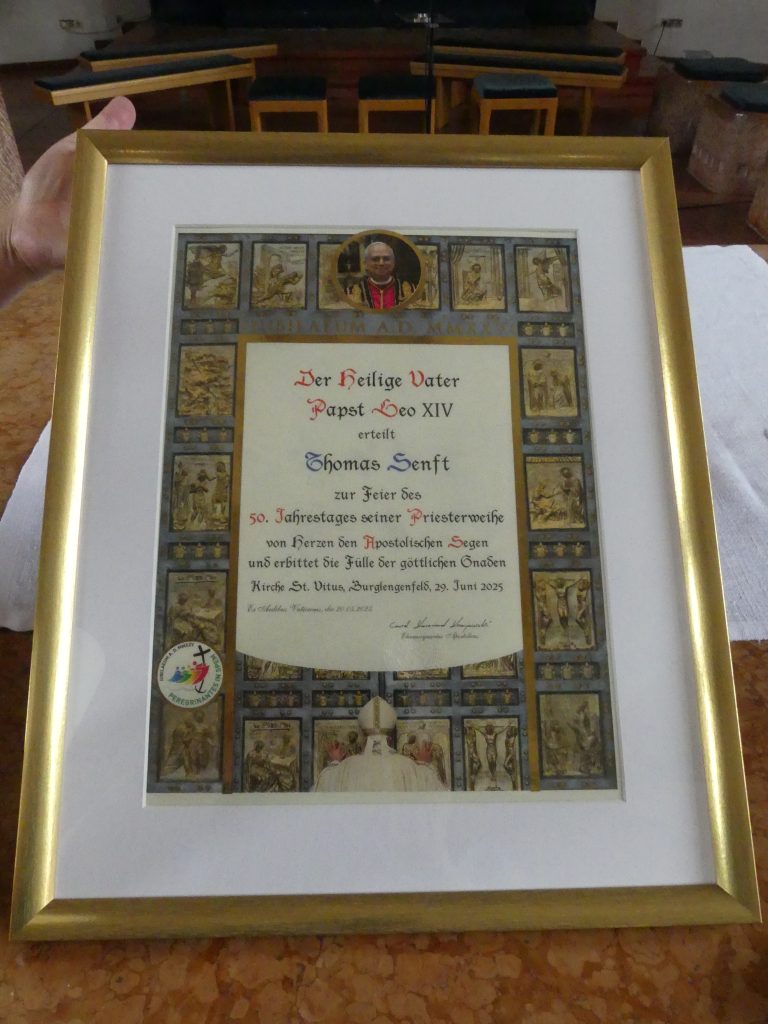 IUBILAEUM A.D. MMXXV
Der Heilige Vater
Papst Leo XIV
erteilt
Thomas Senft
zur Feier des
50. Jahrestages seiner Priesterweihe
von Herzen den Apostolischen Segen
und erbittet die Fülle der göttlichen Gnaden
Kirche St. Vitus, Burglengenfeld, 29. Juni 2025
Ex Aedibus Vaticanis, die 20.05.2025
IUBILAEUM A. D. MMXXV
PEREGRINANTES IN SPEM